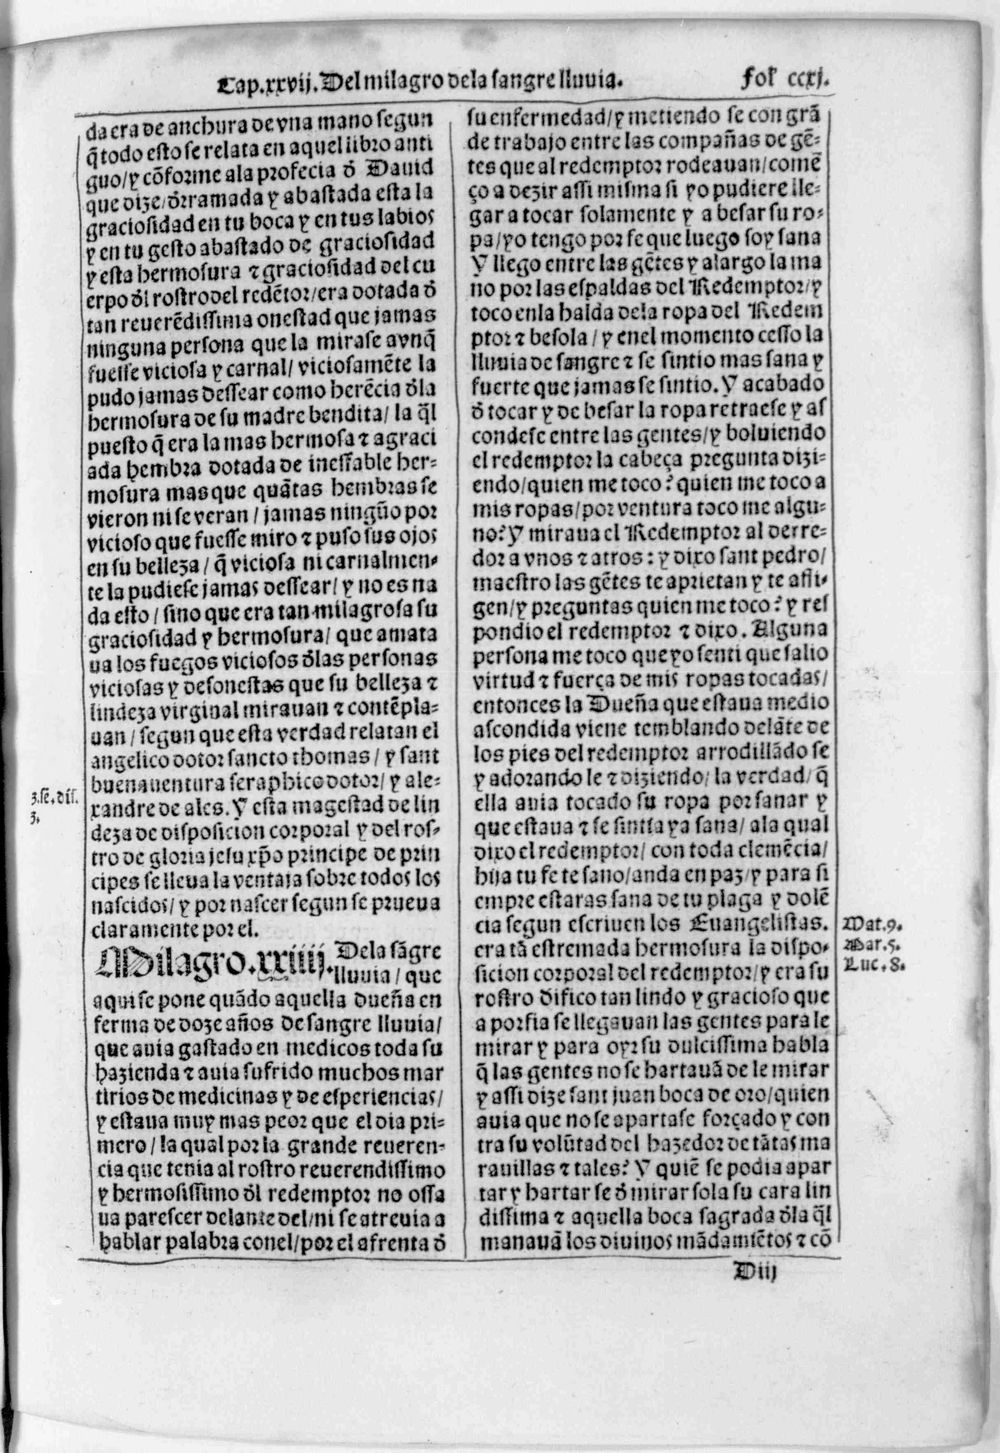 Cap.xxvij. Del milagro dela sangre lluuia. Fol. ccxj.
da era de anchura de vna mano segun
q̃ todo esto se relata en aquel libro anti
guo/y cõforme ala profecia đ Dauid
que dize/đrramada y abastada esta la
graciosidad en tu boca y en tus labios
y en tu gesto abastado de graciosidad
y esta hermosura ⁊ graciosidad del cu
erpo đl rostro del redẽtor/era dotada đ
tan reuerẽdissima onestad que jamas
ninguna persona que la mirase avnq̃
fuesse viciosa y carnal/ viciosamẽte la
pudo jamas dessear como herẽcia đla
hermosura de su madre bendita/ la q̃l
puesto q̃ era la mas hermosa ⁊ agraci
ada hembra dotada de ineffable her-
mosura mas que quãtas hembras se
vieron ni se veran/ jamas ningũo por
vicioso que fuesse miro ⁊ puso sus ojos
en su belleza/ q̃ viciosa ni carnalmen-
te la pudiese jamas dessear/ y no es na
da esto/ sino que era tan milagrosa su
graciosidad y hermosura/ que amata
ua los fuegos viciosos đlas personas
viciosas y desonestas que su belleza ⁊
lindeza virginal mirauan ⁊ contẽpla-
uan/ segun que esta verdad relatan el
angelico dotor sancto thomas/ y sant
buenauentura seraphico dotor/ y ale-
3.sẽ.dis.
3.
xandre de ales. Y esta magestad de lin
deza de disposicion corporal y del ros-
tro de gloria jesu xp̃o principe de prin
cipes se lleua la ventaja sobre todos los
nascidos/ y por nascer segun se prueua
claramente por el.
Milagro.xxiiij. Dela sãgre
lluuia/ que
aqui se pone quãdo aquella dueña en
ferma de doze años de sangre lluuia/
que auia gastado en medicos toda su
hazienda ⁊ auia sufrido muchos mar
tirios de medicinas y de esperiencias/
y estaua muy mas peor que el dia pri-
mero/ la qual por la grande reueren-
cia que tenia al rostro reuerendissimo
y hermosissimo đl redemptor no ossa
ua parescer delante del/ni se atreuia a
hablar palabra conel/por el afrenta đ
su enfermedad/ y metiendo se con grã
de trabajo entre las compañas de gẽ-
tes que al redemptor rodeauan/comẽ
ço a dezir assi misma si yo pudiere lle-
gar a tocar solamente y a besar su ro-
pa/yo tengo por fe que luego soy sana
Y llego entre las gẽtes y alargo la ma
no por las espaldas del Redemptor/y
toco enla halda dela ropa del Redem
ptor ⁊ besola/ y enel momento cesso la
lluuia de sangre ⁊ se sintio mas sana y
fuerte que jamas se sintio. Y acabado
đ tocar y de besar la ropa retraese y as
condese entre las gentes/y boluiendo
el redemptor la cabeça pregunta dizi-
endo/quien me toco? quien me toco a
mis ropas/por ventura toco me algu-
no? Y miraua el Redemptor al derre-
dor a vnos ⁊ atros: y dixo sant pedro/
maestro las gẽtes te aprietan y te afli-
gen/y preguntas quien me toco? y res
pondio el redemptor ⁊ dixo. Alguna
persona me toco que yo senti que salio
virtud ⁊ fuerça de mis ropas tocadas/
entonces la Dueña que estaua medio
ascondida viene temblando delãte de
los pies del redemptor arrodillãdo se
y adorando le ⁊ diziendo/ la verdad/ q̃
ella auia tocado su ropa por sanar y
que estaua ⁊ se sintia ya sana/ ala qual
dixo el redemptor/ con toda clemẽcia/
hija tu fe te sano/anda en paz/y para si
empre estaras sana de tu plaga y dolẽ
cia segun escriuen los Euangelistas.
Mat.9.
Mar.5.
Luc.8.
era tã estremada hermosura la dispo-
sicion corporal del redemptor/y era su
rostro đifico tan lindo y gracioso que
a porfia se llegauan las gentes para le
mirar y para oyr su dulcissima habla
q̃ las gentes no se hartauã de le mirar
y assi dize sant juan boca de oro/quien
auia que no se apartase forçado y con
tra su volũtad del hazedor de tãtas ma
rauillas ⁊ tales? Y quiẽ se podia apar
tar y hartar se đ mirar sola su cara lin
dissima ⁊ aquella boca sagrada đla q̃l
manauã los diuinos mãdamiẽtos ⁊ cõ
Diij